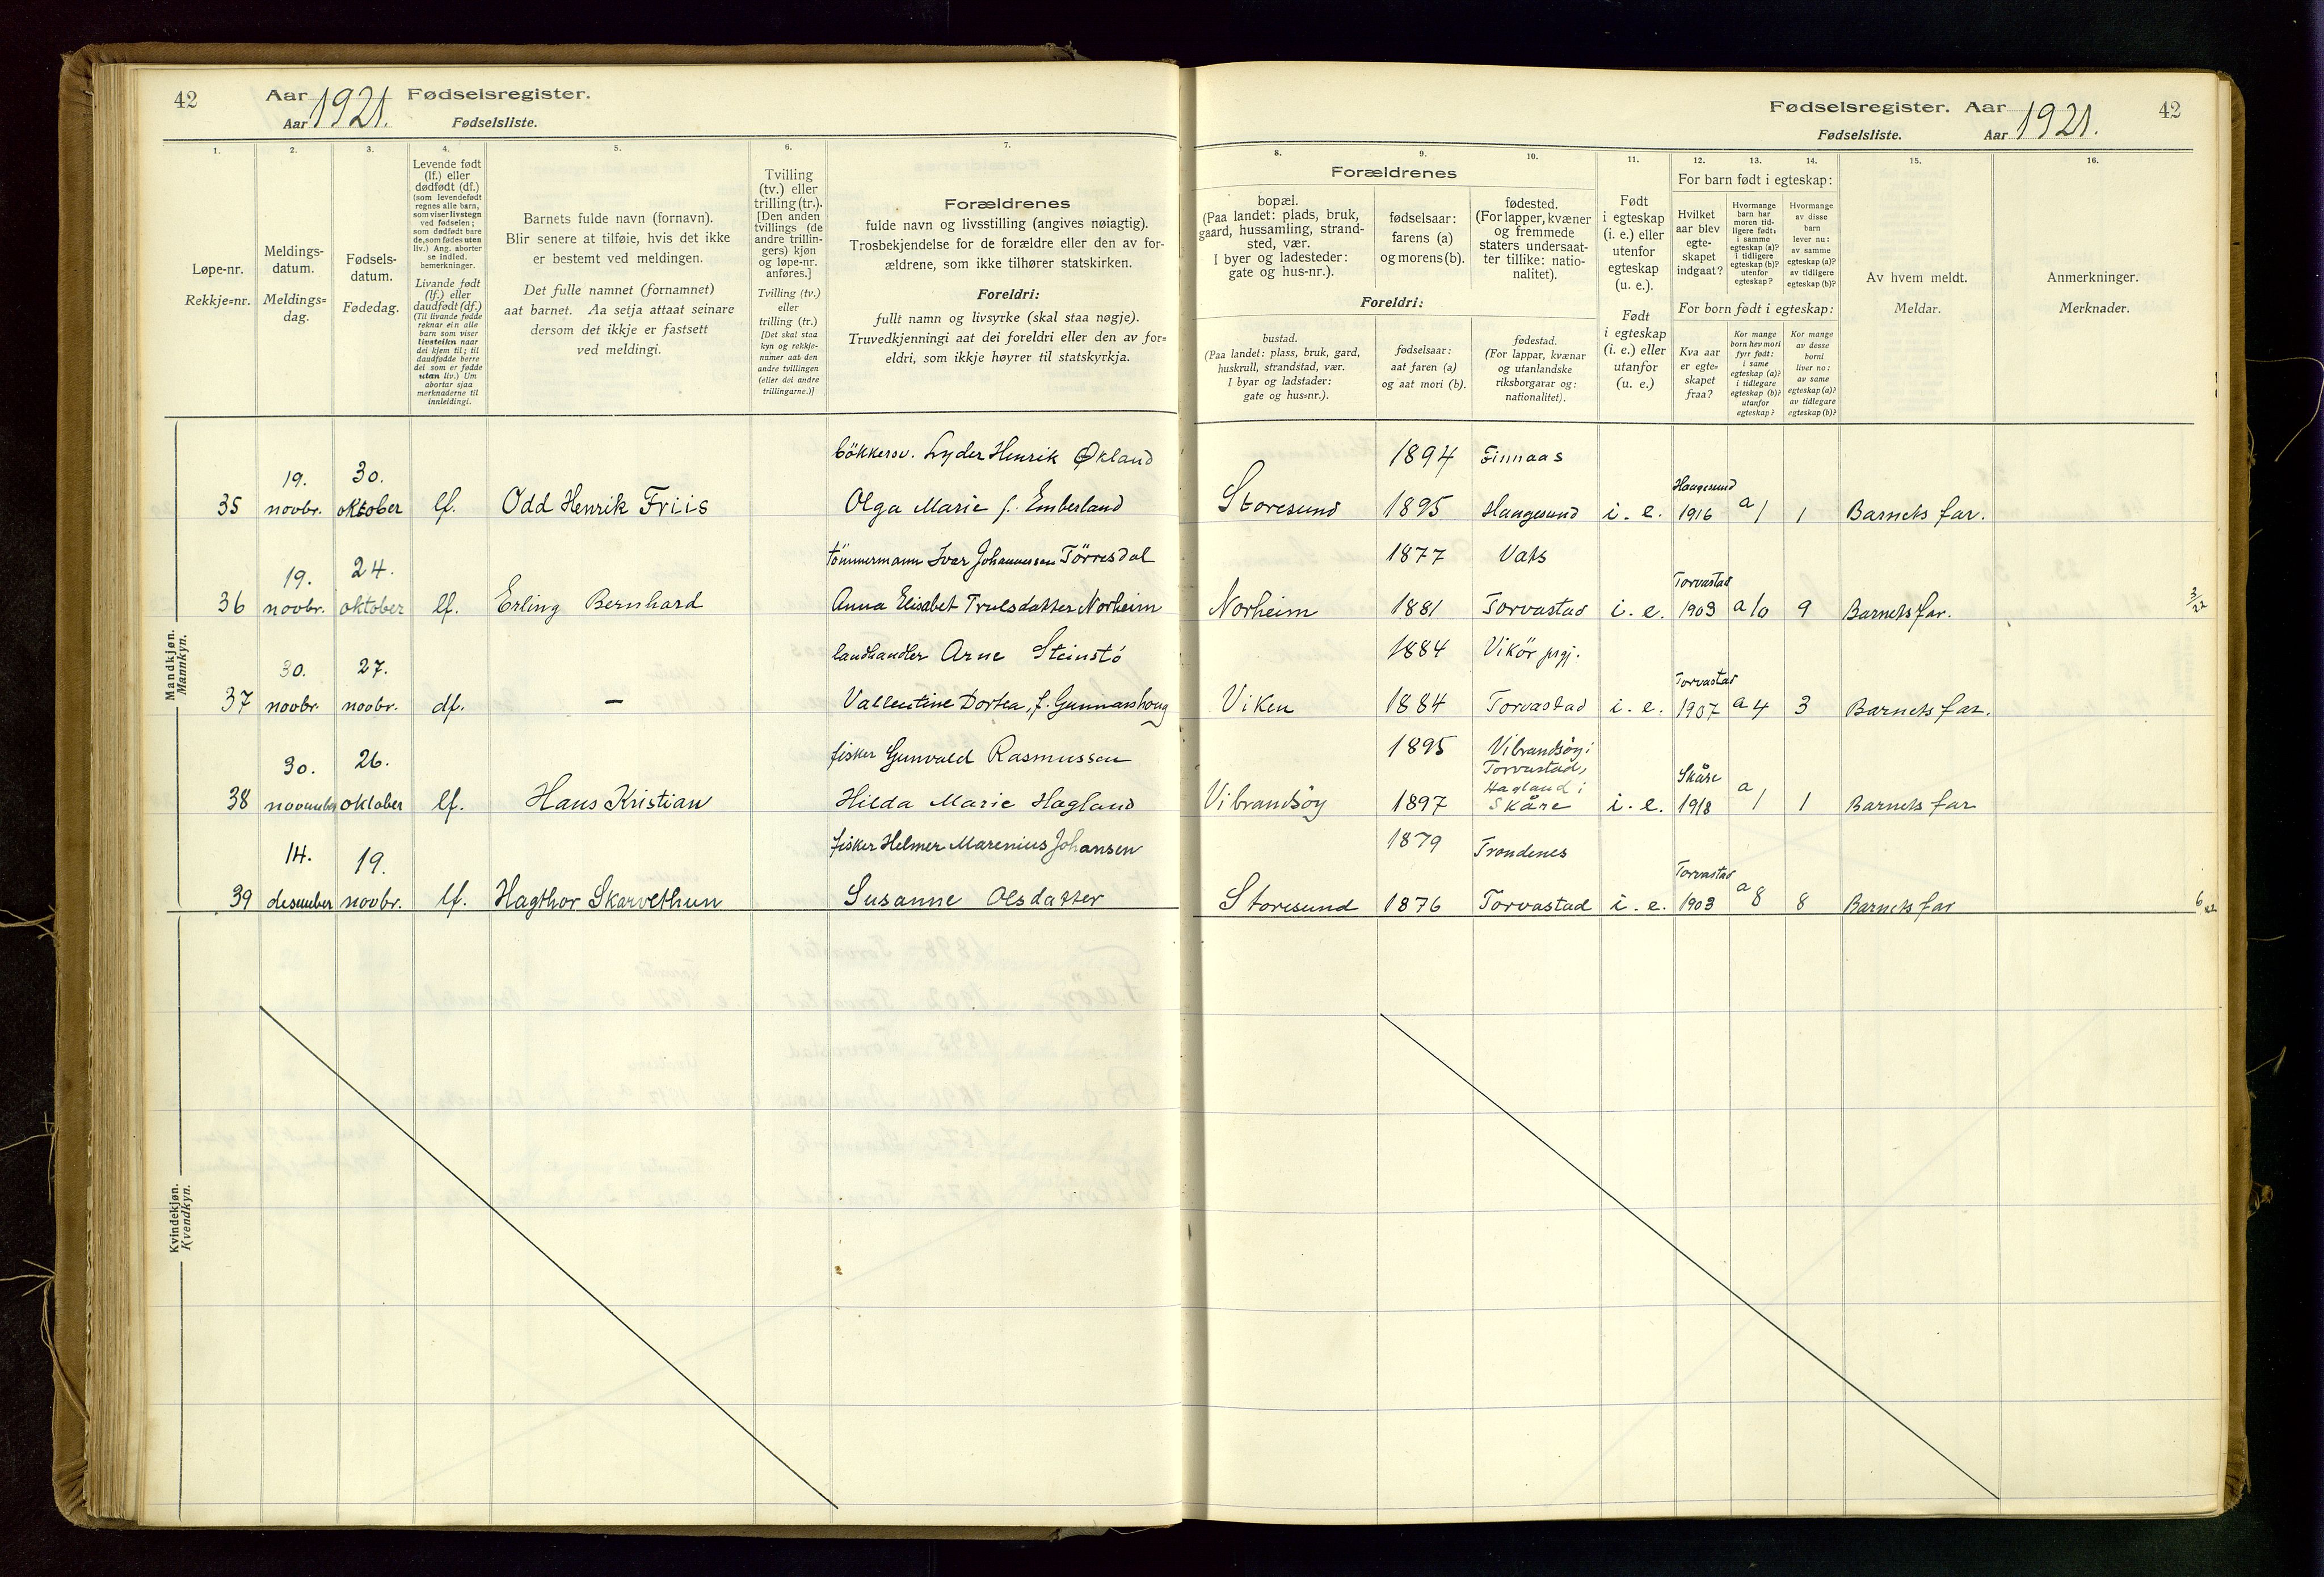 42
Aar 1921. Fødselsregister.
Aar Fødselsliste.
1.
2.
3.
4.
5.
6.
7.
Løpe-nr.
Rekkje=nr.
Meldings-
datum.
Meldings=
dag.
Fødsels-
datum.
Fødedag.
Levende født
(lf.) eller
dødfødt (df.)
(som levendefødt
regnes alle barn,
som viser livstegn
ved fødselen;
som dødfødt bare
de, som fødes uten
liv.) Ang. aborter
se indled.
bemerkninger.
Livande født
(lf.) eller
daudfødt (df.)
(Til livande fødde
reknar ein alle
barn som viser
livsteikn naar
dei kjem til; til
daudfødde berre
dei som er fødde
utan liv.) Um
abortar sjaa
merknaderne til
innleidingi.
Barnets fulde navn (fornavn).
Blir senere at tilføie, hvis det ikke
er bestemt ved meldingen.
Det fulle namnet (fornamnet)
aat barnet. Aa setja attaat seinare
dersom det ikkje er fastsett
ved meldingi.
Tvilling
(tv.) eller
trilling (tr.).
[Den anden
tvillings (de
andre trillin-
gers) kjøn
og løpe-nr.
anføres.]
Tvilling (tv.)
eller
trilling (tr.)
[Det skal staa
kyn og rekkje-
numer aat den
andre tvillingen
(eller dei andre
trillingarne.)]
Forældrenes
fulde navn og livsstilling (angives nøiagtig).
Trosbekjendelse for de forældre eller den av for-
ældrene, som ikke tilhører statskirken.
Foreldri:
fullt namn og livsyrke (skal staa nøgje).
Truvedkjenningi aat dei foreldri eller den av for=
eldri, som ikkje høyrer til statskyrkja.
Mandkjøn.
Mannkyn.
bökkersv. Lyder Henrik Økland
35 19. novbr. 30. oktober lf. Odd Henrik Friis Olga Marie f. Emberland
tömmermann Ivar Johannessen Törresdal
36 19. novbr. 24. oktober lf. Erling Bernhard Anna Elisabet Trulsdatter Norheim
landhandler Arne Steinstö
37 30. novbr. 27. novbr. df. – Vallentine Dortea, f. Gunnarshoug
fisker Gunvald Rasmussen
38 30. november 26. oktober lf. Hans Kristian Hilda Marie Hagland
fisker Helmer Marenius Johansen
39 14. desember 19. novbr. lf. Hagthor Skarvethun Susanne Olsdatter
Kvindekjøn.
Kvendkyn.
Fødselsregister. Aar 1921. 42
Fødselsliste. Aar
8.
9.
10.
11.
12.
13.
14.
15.
16.
Forældrenes
bopæl.
(Paa landet: plads, bruk,
gaard, hussamling, strand-
sted, vær.
I byer og ladesteder:
gate og hus-nr.).
fødselsaar:
farens (a)
og morens (b).
fødested.
(For lapper, kvæner
og fremmede
staters undersaat-
ter tillike: natio-
nalitet).
Foreldri:
bustad.
(Paa landet: plass, bruk, gard,
huskrull, strandstad, vær.
I byar og ladstader:
gate og hus=nr.).
fødselsaar:
aat faren (a)
og aat mori (b).
fødestad.
(For lappar, kvænar
og utanlandske
riksborgarar og:
nationalitet).
Født
i egteskap
(i. e.) eller
utenfor
egteskap
(u. e.).
Født
i egteskap
(i. e.) eller
utanfor
(u. e.)
For barn født i egteskap:
Hvilket
aar blev
egte-
skapet
indgaat?
Hvormange
barn har
moren tid-
ligere født:
i samme
egteskap (a)?
i tidligere
egteskap (b)?
utenfor
egteskap?
Hvormange
av disse
barn
lever nu:
av samme
egteskap (a)?
av tidligere
egteskap (b)?
For born født i egteskap:
Kva aar
er egte=
skapet
fraa?
Kor mange
born hev mori
fyrr født:
i same
egteskap (a)?
i tidlegare
egteskap (b)?
utanfor
egteskap?
Kor mange
av desse
borni
liver no:
av same
egteskap (a)?
av tidlegare
egteskap (b)?
Av hvem meldt.
Meldar.
Anmerkninger.
Merknader.
1894 Finnaas
Storesund 1895 Haugesund i. e. Haugesund 1916 a 1 1 Barnets far.
1877 Vats
Norheim 1881 Torvastad i. e. Torvastad 1903 a 10 9 Barnets far. 3/22
1884 Vikör prgj.
Viken 1884 Torvastad i. e. Torvastad 1907 a 4 3 Barnets far.
1895 Vibrandsöy i
Torvastad,
Hagland i
Vibrandsöy 1897 Skåre i. e. Skåre 1918 a 1 1 Barnets far
1879 Trondenes
Storesund 1876 Torvastad i. e. Torvastad 1903 a 8 8 Barnets far 6/22